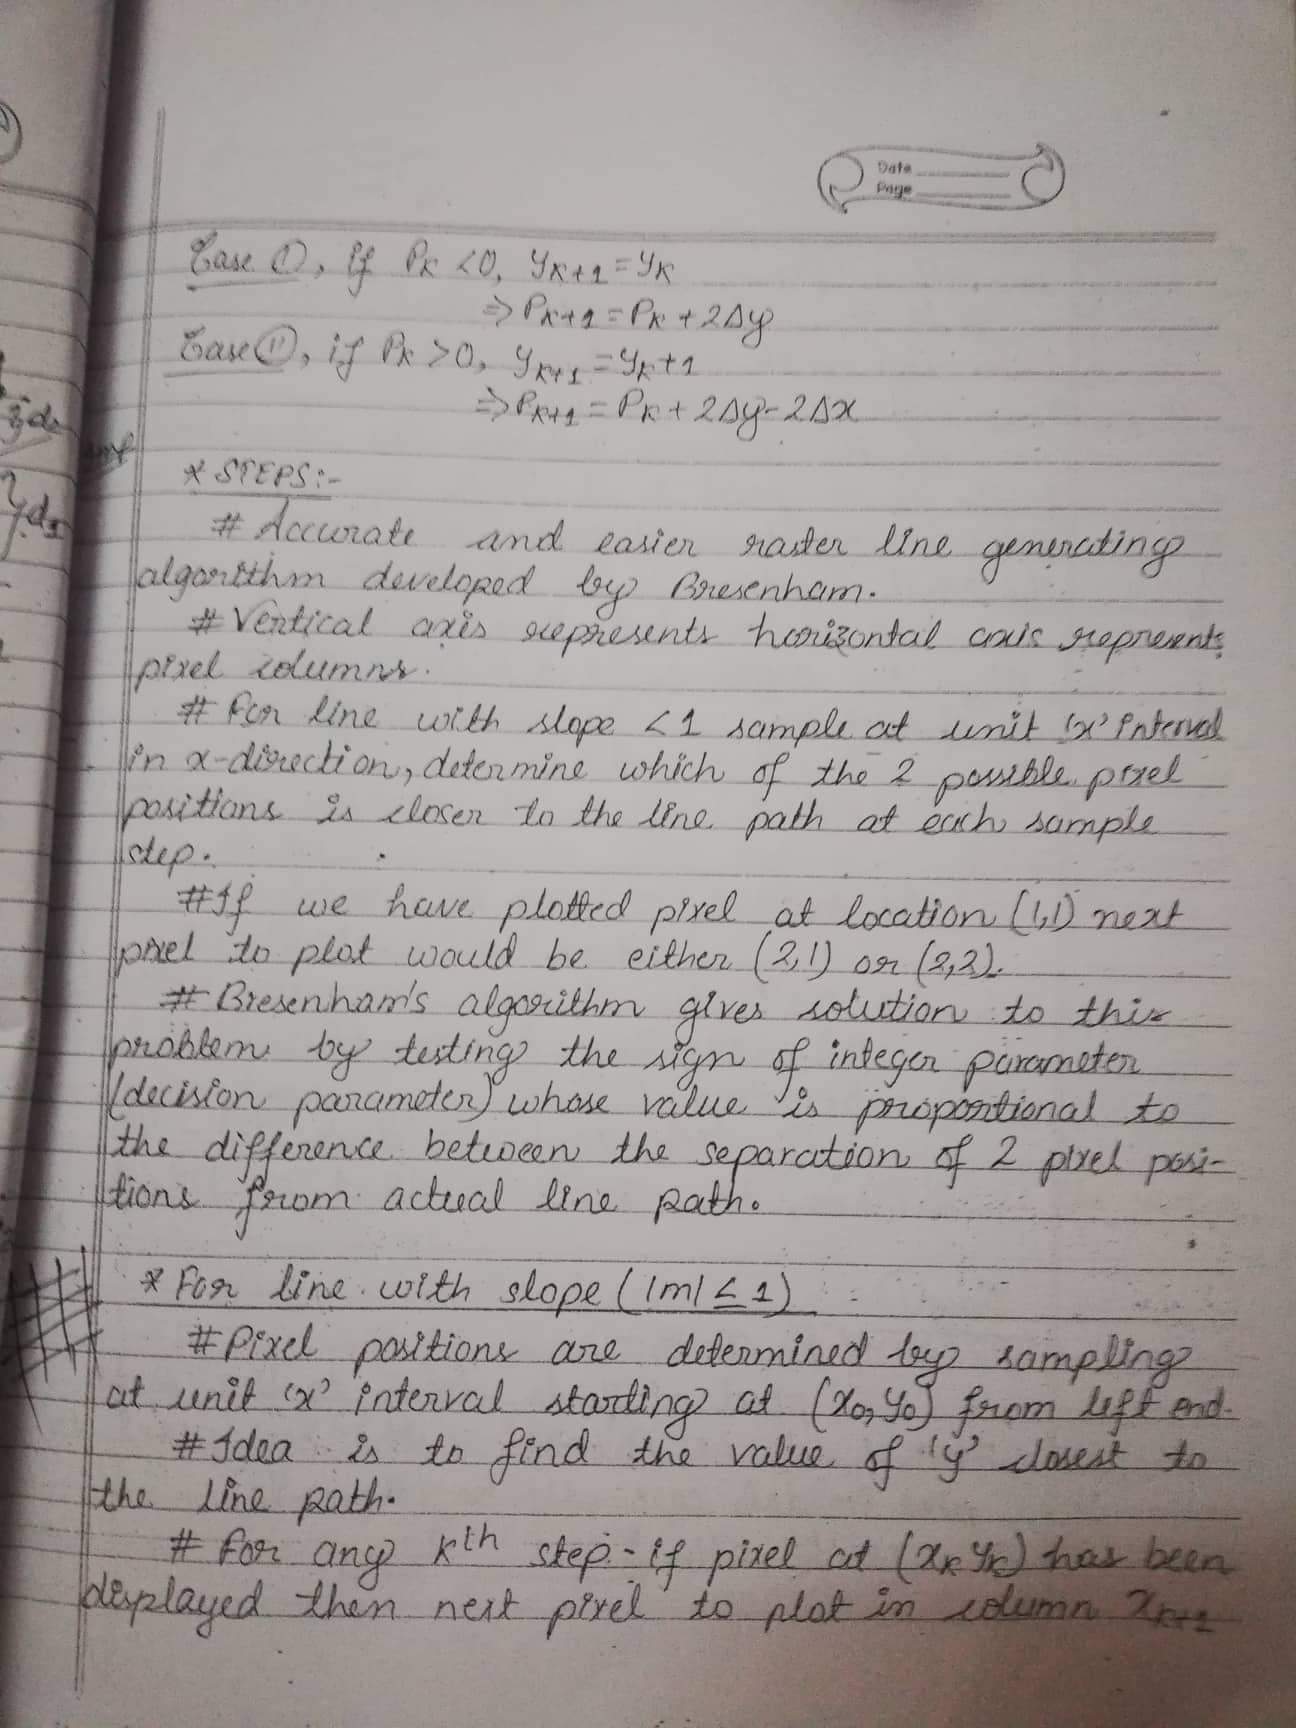 Date
Page
Case (I), if Pk <0, yk+1 = yk
⇒ Pk+1 = Pk + 2Δy
Case (II), if Pk >0, yk+1 = yk+1
⇒ Pk+1 = Pk + 2Δy - 2Δx
* STEPS:-
# Accurate and easier raster line generating
algorithm developed by Bresenham.
# Vertical axis represents horizontal axis represents
pixel columns.
# For line with slope <1 sample at unit 'x' interval
in x-direction, determine which of the 2 possible pixel
positions is closer to the line path at each sample
step.
# If we have plotted pixel at location (1,1) next
pixel to plot would be either (2,1) or (2,2).
# Bresenham's algorithm gives solution to this
problem by testing the sign of integer parameter
(decision parameter) whose value is proportional to
the difference between the separation of 2 pixel posi-
tions from actual line path.
* For line with slope (|m| ≤ 1)
# Pixel positions are determined by sampling
at unit 'x' interval starting at (x0, y0) from left end.
# Idea is to find the value of 'y' closest to
the line path.
# For any kth step - if pixel at (xk yk) has been
displayed then next pixel to plot in column xk+1